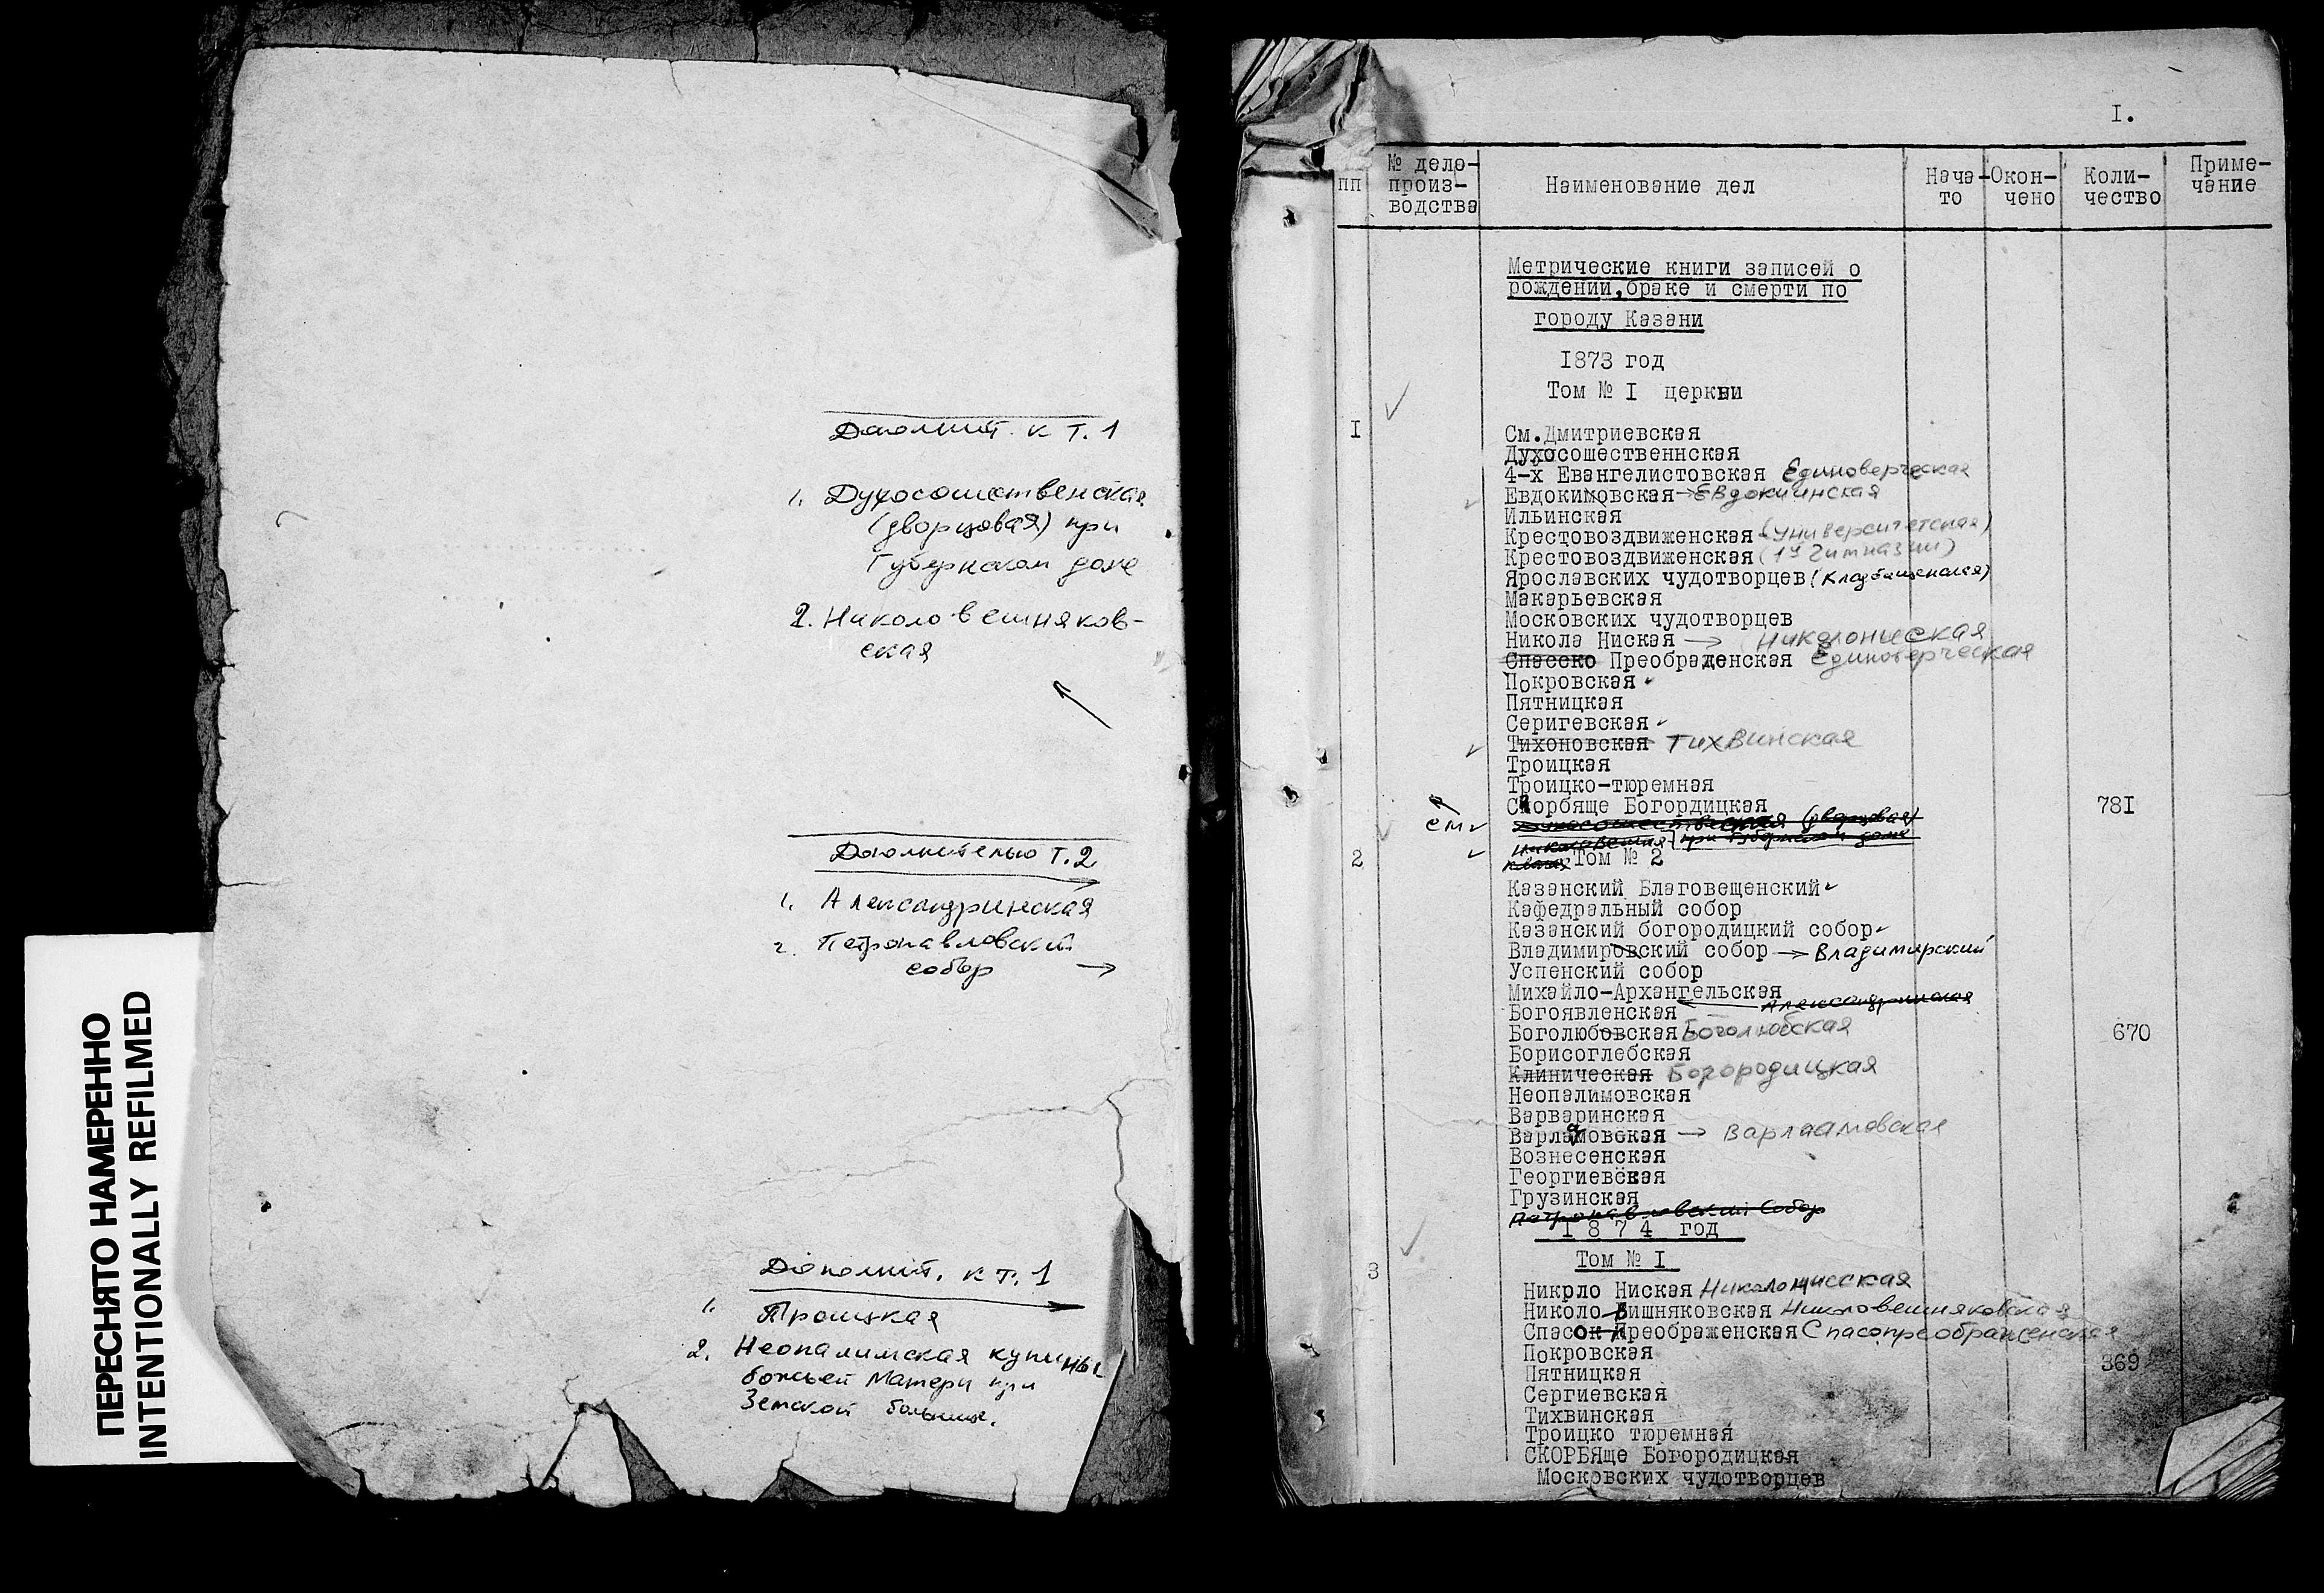 ПЕРЕСНЯТО НАМЕРЕННО
INTENTIONALLY REFILMED
Дополнит. к т. 1
1. Духосошественская
(дворцовая) при
Губернском доме
2. Николовешняков-
ская
Дополнительно т. 2
1. Александринская
2. Петропавловский
собор →
Дополнит. к т. 1
1. Троицкая
2. Неопалимская купины
божьей Матери при
Земской больнице.
I.
пп
№ дело-
произ-
водства
Наименование дел
Нача-
то
Окон-
чено
Коли-
чество
Приме-
чание
Метрические книги записей о
рождении, браке и смерти по
городу Казани
1873 год
Том № I церкви
I
См.Дмитриевская
Духосошественнская
4-х Евангелистовская Единоверческая
Евдокимовская → Евдокиинская
Ильинская
Крестовоздвиженская (университетская)
Крестовоздвиженская (1й гимназии)
Ярославских чудотворцев (Кладбищенская)
Макарьевская
Московских чудотворцев
Никола Ниская → Николониская
Спасско Преобраденская Единоверческая
Покровская
Пятницкая
Серигевская
Тихоновская Тихвинская
Троицкая
Троицко-тюремная
Скорбяще Богордицкая 781
см Духосошественская (дворцовая)
при Губернском доме
2 Том № 2
Казанский Благовещенский
Кафедральный собор
Казанский богородицкий собор
Владимировский собор → Владимирский
Успенский собор
Михайло-Архангельская
Александринская
Богоявленская
Боголюбовская Боголюбская 670
Борисоглебская
Клиническая Богородицкая
Неопалимовская
Варваринская
Варламовская → Варлаамовская
Вознесенская
Георгиевская
Грузинская
Петропавловский Собор
1874 год
Том № I
3
Никрло Ниская Николониская
Николо-Вишняковская Николовешняковская
Спасок Преображенская Спасопреображенская
Покровская 369
Пятницкая
Сергиевская
Тихвинская
Троицко тюремная
СКОРБЯще Богородицкая
Московских чудотворцев